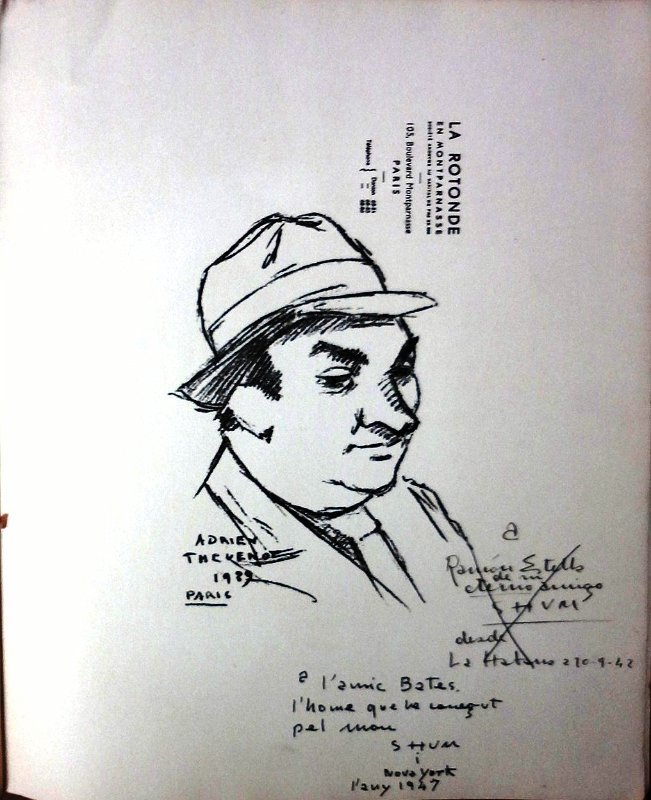 LA ROTONDE
EN MONTPARNASSE
105, Boulevard Montparnasse
PARIS
Téléphone
Danton
ADRIEN
1939
PARIS
a
Ramón
de mi
eterno amigo
SHUM
desde
La Habana 20-9-42
a l'amic Bates.
l'home que he conegut
pel mon
SHUM
i
Nova York
l'any 1947